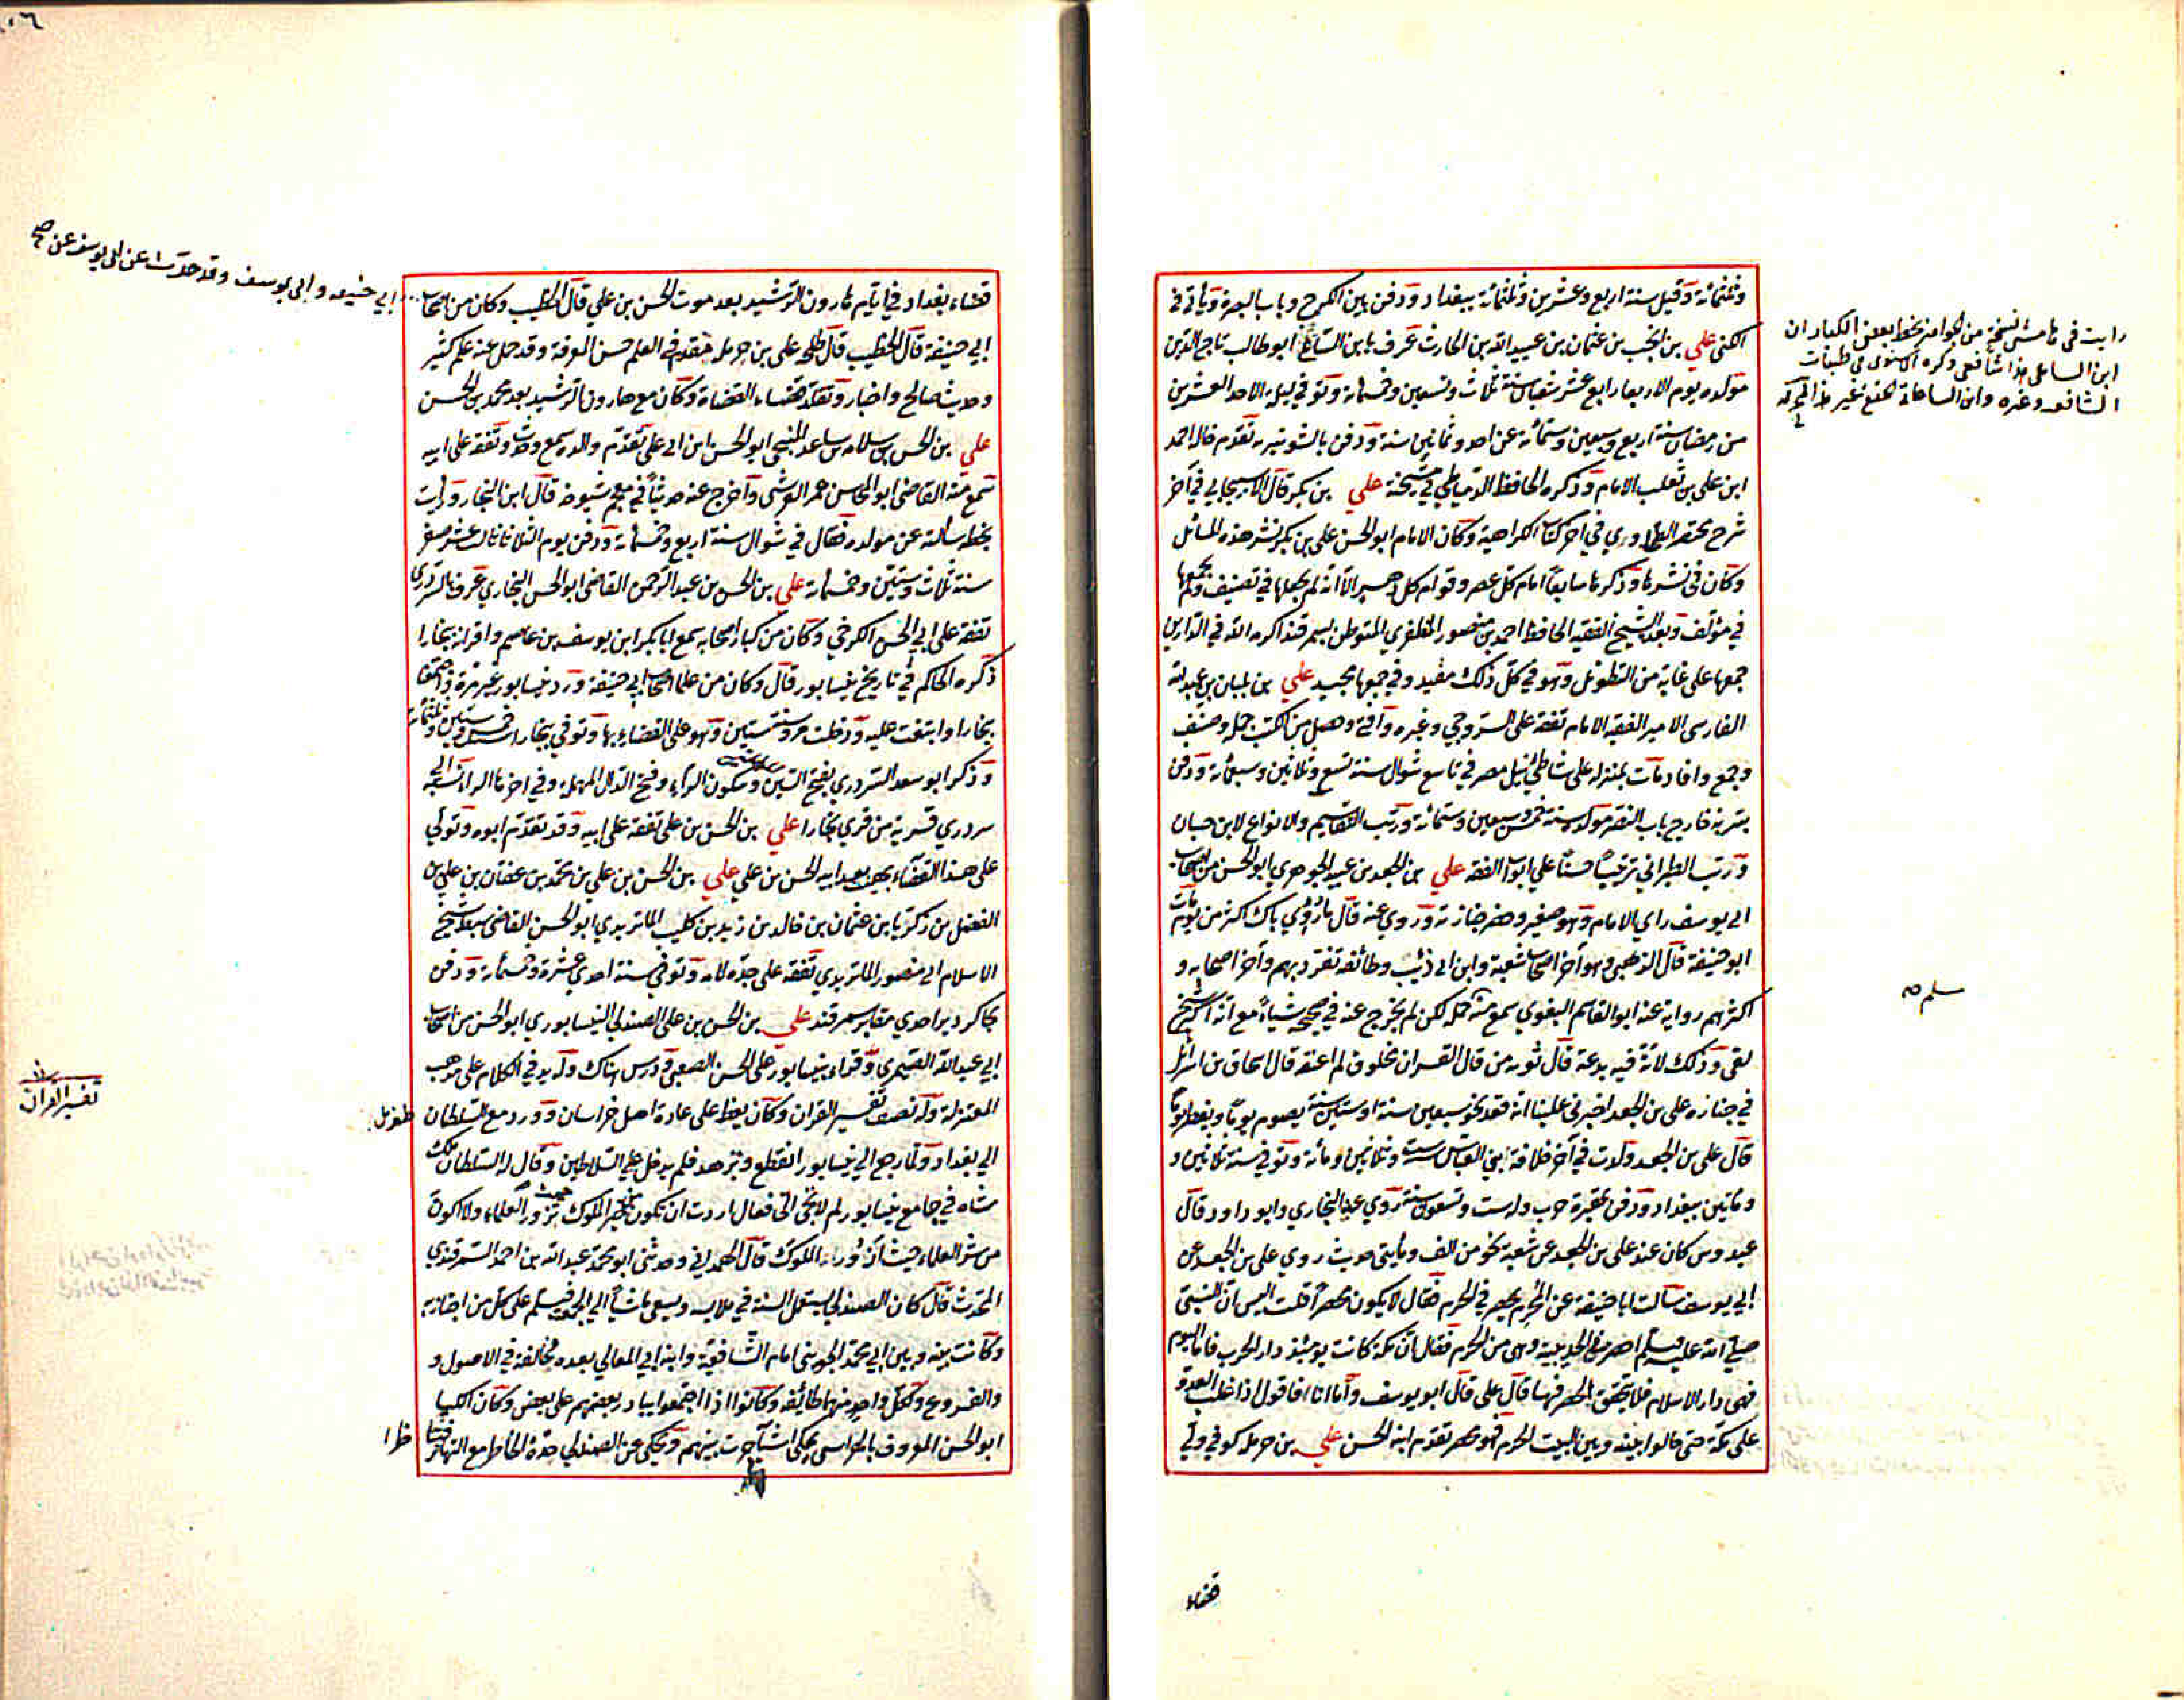 وثلثمائة وقيل سنة اربع وعشرين وثلثمائة ببغداد ودفن بين الكرخ وباب البصرة ويأتي في
الكنى علي بن انجب بن عثمان بن عبيد الله بن الحارث عرف بابن الساعي ابو طالب تاج الدين
مولده يوم الاربعا رابع عشر شعبان سنة ثلاث وتسعين وخمسمائة وتوفي ليلة الاحد العشرين
من رمضان سنة اربع وسبعين وستمائة عن احد وثمانين سنة ودفن بالشونيزيه تقدم خاله احمد
ابن علي بن تغلب الامام وذكره الحافظ الدمياطي في مشيخته علي بن بكر قال الاسبيجابي في آخر
شرح مختصر الطحاوي في اخر كتاب الكراهية وكان الامام ابو الحسن علي بن بكر نشر هذه المسائل
وكان في نشرها وذكرها سابقا امام كل عصر وقوام كل دهر الا انه لم يجعلها في تصنيف ولم يجمعها
في مؤلف وبعد الشيخ الفقيه الحافظ احمد بن منصور المظفري المتوطن بسمرقند اكرمه الله في الدارين
جمعها على غاية من التطويل وهو في كل ذلك مفيد وفي جمعها مجيد علي بن بلبان بن عبد الله
الفارسي الامير الفقيه الامام تفقه على السروجي وغيره وافتى وحصل من الكتب جملة وصنف
وجمع وافاد مات بمنزله على شاطئ نيل مصر في تاسع شوال سنة تسع وثلاثين وسبعمائة ودفن
بتربته خارج باب النصر مولده سنة خمس وسبعين وستمائة ورتب التقاسيم والانواع لابن حبان
ورتب الطبراني ترتيبا حسنا على ابواب الفقه علي بن الجعد بن عبيد الجوهري ابو الحسن من اصحاب
ابي يوسف راي الامام وهو صغير وحضر جنازته وروي عنه قال ما رؤي باك اكثر من يوم مات
ابو حنيفة قال الذهبي وهو آخر اصحاب شعبة وابن ابي ذئب وطائفة تفرد بهم وآخر اصحابه و
اكثرهم رواية عنه ابو القاسم البغوي سمع منه جملة لكن لم يخرج عنه في صحيحه شيأ مع انه اكبر شيخ
لقي وذلك لانه فيه بدعة قال ثوبه من قال القران مخلوق لم اعنفه قال اسحاق بن اسرائيل
في جنازة علي بن الجعد اخبرني علينا انه فقد نحو سبعين سنة او ستين سنة يصوم يوما ويفطر يوما
قال علي بن الجعد ولدت في آخر خلافة ابي العباس سنة ست وثلاثين ومائة وتوفي سنة ثلاثين و
ومائتين ببغداد ودفن بمقبرة حرب وله ست وتسعون سنة روي عنه البخاري وابو داود قال
عبدوس كان عند علي بن الجعد عن شعبة نحو من الف ومائتي حديث روي علي بن الجعد عن
ابي يوسف سألت ابا حنيفة عن المحرم يحصر في الحرم فقال لا يكون محصرا قلت اليس ان النبي
صلى الله عليه وسلم احصر في الحديبية وهي من الحرم فقال ان مكة كانت يومئذ دار الحرب فاما اليوم
فهي دار الاسلام فلا يتحقق الحصر فيها قال علي قال ابو يوسف واما انا فاقول اذا غلب العدو
على مكة حتى حالوا بينه وبين البيت الحرام فهو محصر تقدم ابنه الحسن علي بن حرملة كوفي ولي
قضاء
رايت في هامش نسخة من الجواهر بخط بعض الكبار ان
ابن الساعي هذا شافعي ذكره الاسنوي في طبقات
الشافعيه وغيره وابن الساعاتي الحنفي غير هذا
مسلم
قضاء بغداد في ايام هارون الرشيد بعد موت الحسن بن علي قال الخطيب وكان من اصحاب
ابي حنيفة وابي يوسف وقد حدث عن ابي يوسف عن صح
ابي حنيفة قال الخطيب قال طلحة علي بن حرملة مقدم في العلم حسن المعرفة وقد حمل عنه علم كثير
وحديث صالح واخبار وتقلد قضاء القضاة وكان مع هارون الرشيد بعد محمد بن الحسن
علي بن الحسن بن سلامه بن ساعد المنبجي ابو الحسن ابن ابي علي تقدم والده سمع وحدث وتفقه على ابيه
سمع منه القاضي ابو المحاسن عمر القرشي واخرج عنه حديثا في معجم شيوخه قال ابن النجار ورأيت
بخطه سألته عن مولده فقال في شوال سنة اربع وخمسمائة ودفن يوم الثلاثا ثالث عشر صفر
سنة ثلاث وستين وخمسمائة علي بن الحسن بن عبد الرحمن القاضي ابو الحسن البخاري عرف بالسردري
تفقه على ابي الحسن الكرخي وكان من كبار اصحابه سمع ابا بكر ابن يوسف بن عاصم واقرانه ببخارا
ذكره الحاكم في تاريخ نيسابور قال وكان من علماء اصحاب ابي حنيفة ورد نيسابور غير مرة
بخارا وانتخبت عليه ودخلت مرو سنة ستين وهو على القضاء بها وتوفي ببخارا سنة خمس وستين وثلثمائة
وذكر ابو سعد السردري بفتح السين وسكون الراء وفتح الدال المهملة وفي اخرها الراء نسبة الى
سردري قرية من قري بخارا علي بن الحسن بن علي تفقه على ابيه وقد تقدم ابوه وتولي
على هذا القضاء بهراة بعد ابيه الحسن بن علي علي بن الحسن بن علي بن محمد بن عفان بن علي بن
الفضل بن زكريا بن عثمان بن خالد بن زيد بن كليب الماتريدي ابو الحسن القاضي سبط شيخ
الاسلام ابي منصور الماتريدي تفقه على جده لامه وتوفي سنة احدي عشرة وخمسمائة ودفن
بجاكرديز احدي مقابر سمرقند علي بن الحسن بن علي الصندلي النيسابوري ابو الحسن من اصحاب
ابي عبد الله الصيمري وقراء بنيسابور على الحسن الصعبي ودرس هناك وله يد في الكلام على مذهب
المعتزلة وله تصنيف تفسير القران وكان يعظ على عادة اهل خراسان وورد مع السلطان طغرل
الى بغداد ولما رجع الي نيسابور انقطع وتزهد فلم يدخل على السلاطين وقال له السلطان ملك
شاه في جامع نيسابور لم لا تجي الى فقال اردت ان تكون خير الملوك حيث تزور العلماء ولا اكون
من شر العلماء حيث ازور الملوك قال الهمداني وحدثني ابو محمد عبد الله بن احمد السمرقندي
المحدث قال كان الصندلي يستعمل السنة في ملابسه ويسعى ماشيا الى الجمعة فيسلم على كل من اجتاز به
وكانت بينه وبين ابي محمد الجويني امام الشافعية وابنه ابي المعالي بعده مخالفة في الاصول و
والفروع ولكل واحد منهما طائفة وكانوا اذا اجتمعوا يبادر بعضهم على بعض وكان الكيا
ابو الحسن المعروف بالهراسي يحكي اشياء جرت بينهم ويحكي عن الصندلي حدة الخاطر مع
تفسير القرآن